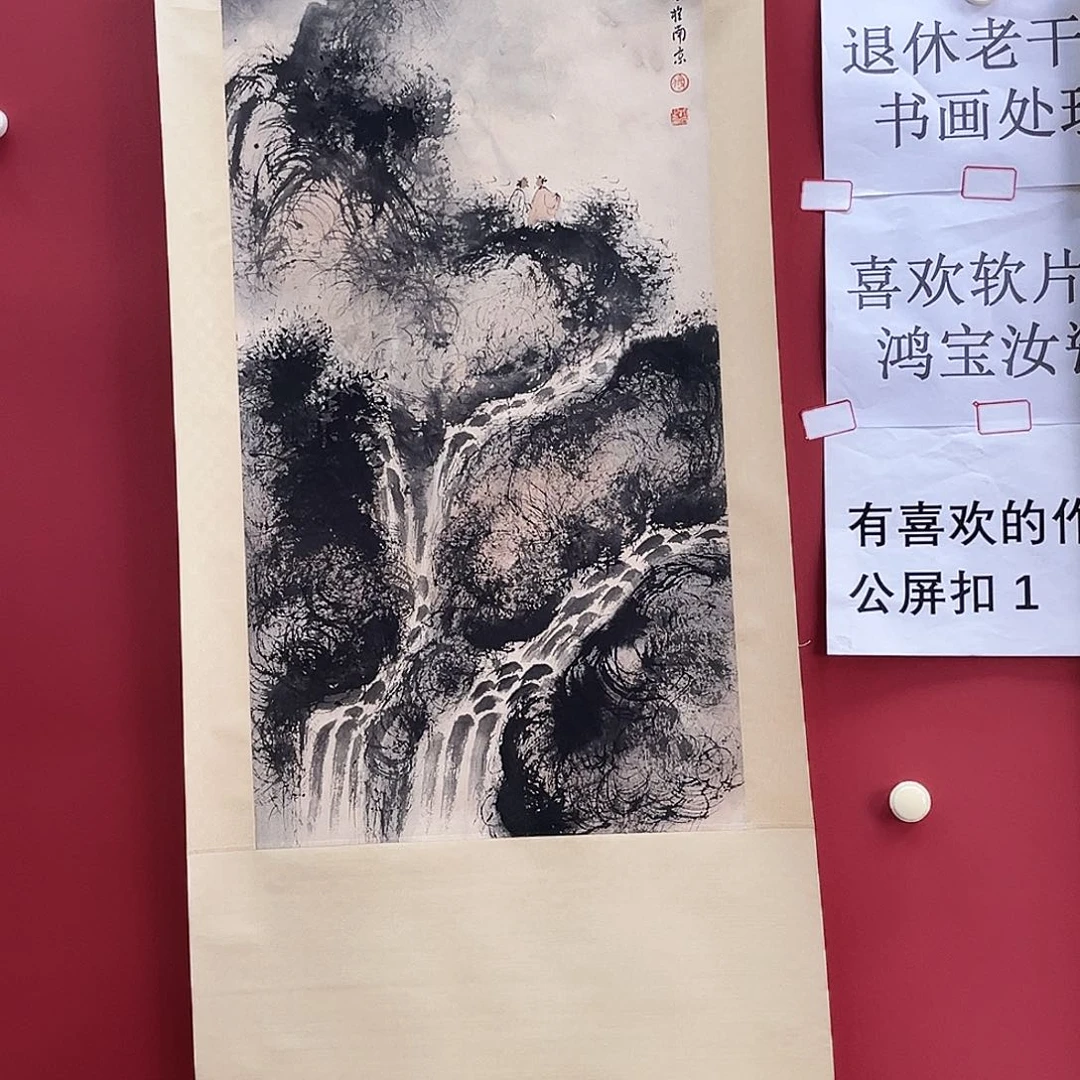 於南京
退休老干
书画处
喜欢软片
鸿宝汝
有喜欢的作
公屏扣 1